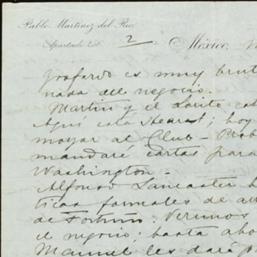 Pablo Martinez del Rio
Apartado
2
México,
es muy brut
nada del negocio.
Martin y el Santo
Aqui está Hearst; hoy
al Club - Prob
mandaré cartas para
Washington -
Alfonso Lancaster
ticas formales de
de Fortuna. Veremos
el negocio; hasta ahor
Manuel les dará p